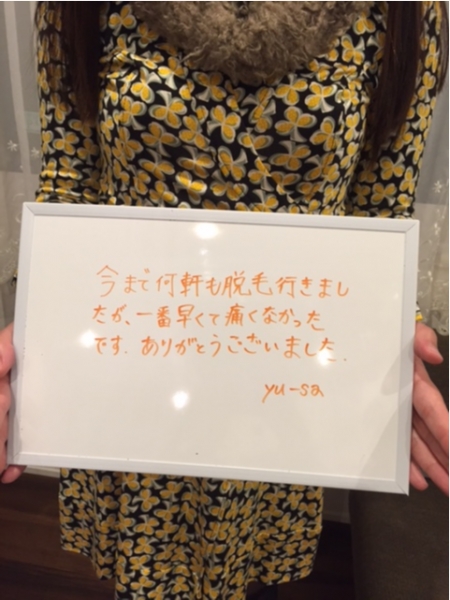 今まで何軒も脱毛行きまし
たが、一番早くて痛くなかった
です. ありがとうございました.
yu-sa